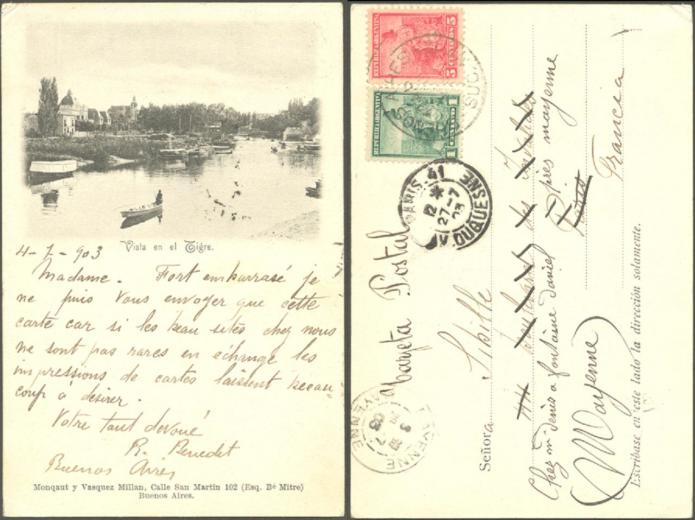 Vista en el Tigre.
4-7-903
Madame. Fort embarrasé je
ne puis vous envoyer que cette
carte car si les beau sites chez nous
ne sont pas rares en échange les
impressions de cartes laissent beau
coup à désirer.
Votre tout devoué
R. Benedet
Buenos Aires
Monqaut y Vasquez Millan, Calle San Martin 102 (Esq. Bé Mitre)
Buenos Aires.
REPUBLICA ARGENTINA
5
CENTAVOS
REPUBLICA ARGENTINA
1
CENTAVO
PARIS. 41
12 *
27-7
03
AV. DUQUESNE
MAYENNE
03
MAYENNE
Tarjeta Postal
Señora
Sibille
Chez mr denis a fontaine daniel près mayenne
Mayenne
Francia
Escribase en este lado la dirección solamente.